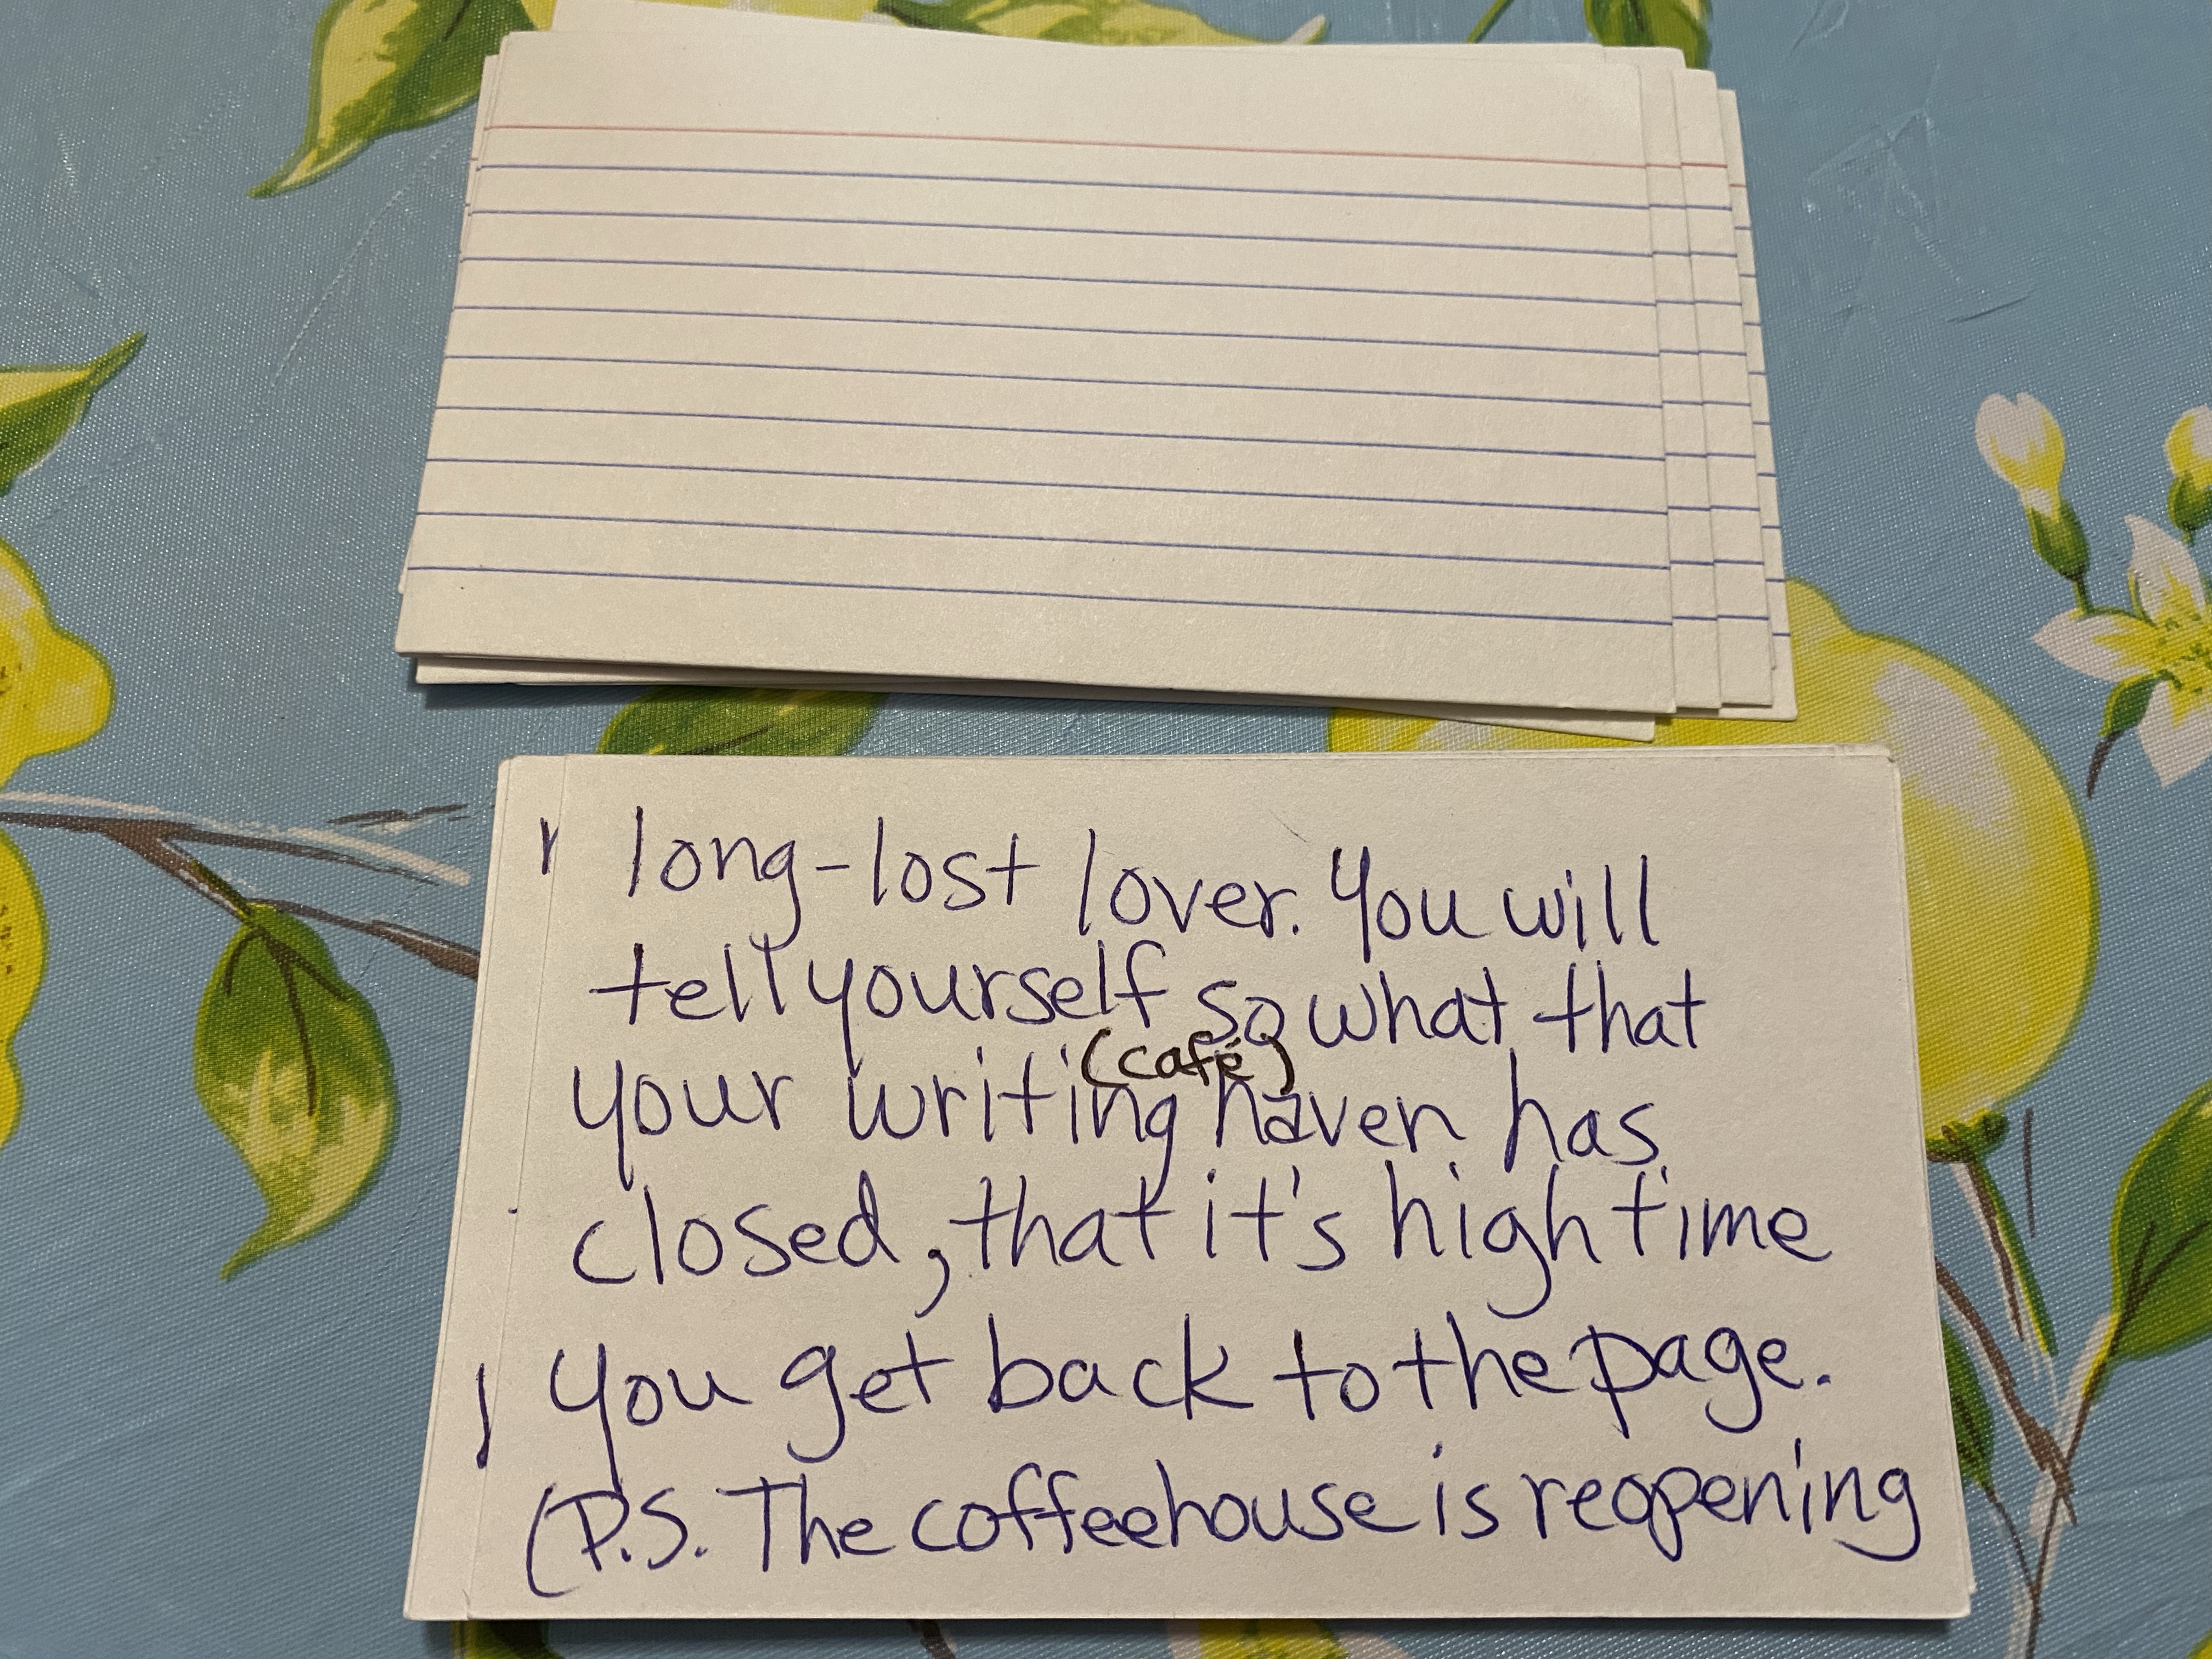 long-lost lover. You will
tell yourself so what that
(café)
your writing haven has
closed, that it's high time
you get back to the page.
(P.S. The coffeehouse is reopening